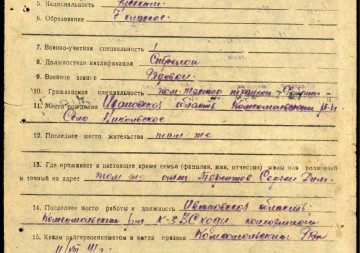 5. Национальность Русский
6. Образование 7 классов
7. Военно-учетная специальность 1
8. Должностная квалификация Стрелок
9. Военное звание Рядовой
10. Гражданская специальность
11. Место рождения Ивановская область Комсомольский р-н
Село Никольское
12. Последнее место жительства там же
13. Где проживает в настоящее время семья (фамилия, имя, отчество) жены или родителей
и точный их адрес там же отец Сергей
14. Последнее место работы и должность Ивановская область
Комсомольский р-н к-з
15. Каким райгорвоенкоматом и когда призван Комсомольским